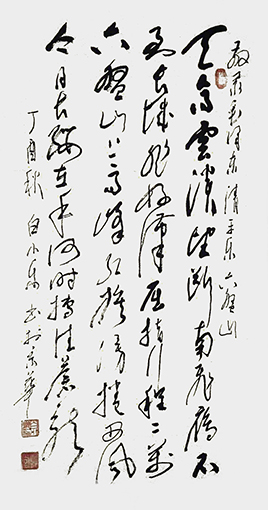 敬录毛泽东清平乐六盤山
天高雲淡望断南飛雁不
到长城非好漢屈指行程二萬
六盤山上高峰红旗漫捲西风
今日长缨在手何时缚住蒼龙
丁酉秋 白小乐书於京華